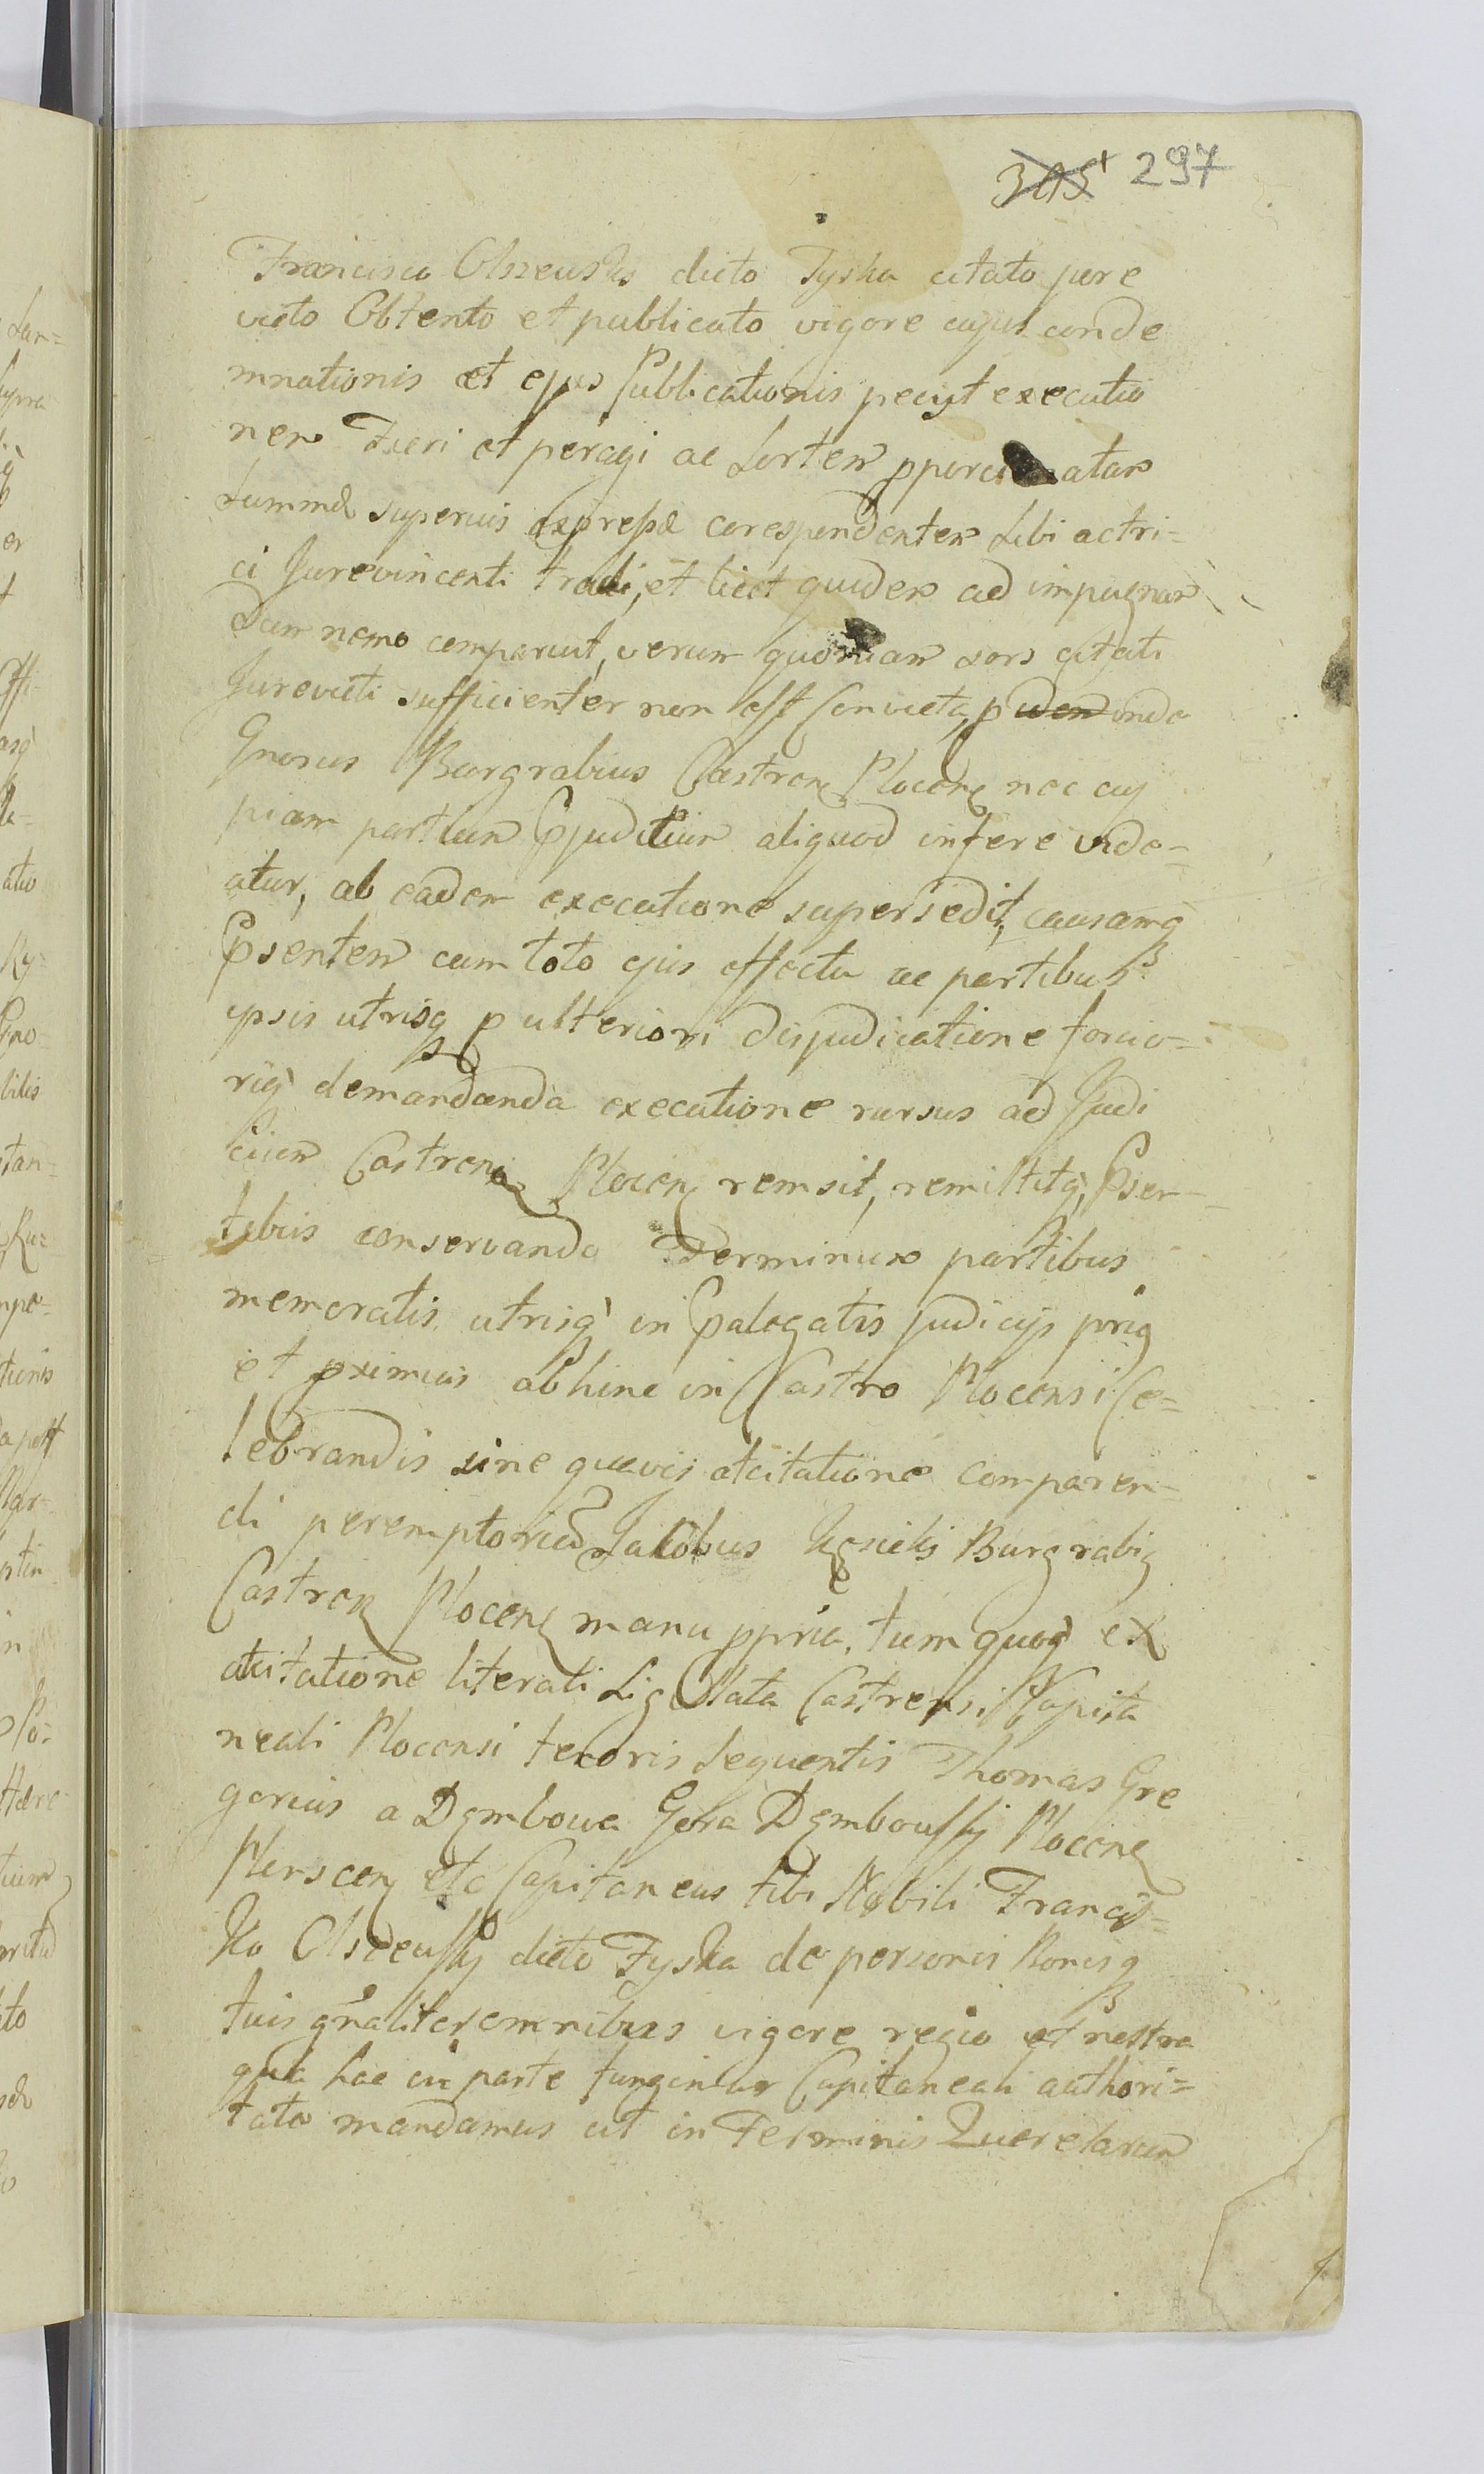 305 297
Francisco Olszewski dicto Tyska citato jure
victo Obtento et publicato vigore cujus conde
mnationis et ejus Publicationis petijt executio
nem Fieri et peragi ac Sortem
Summæ superius Expressæ corespondentem Sibi actri=
ci Jurevincenti tradi, et licet quidem ad impugnan
dum nemo comparuit, verum quoniam sors citati
Jurevicti sufficienter non est Convicta, p inde
Gnosus Burgrabius Castren Plocen nec cuj
piam partium Pjuditium aliquod infere vide=
atur, ab eadem executione supersedit, causamq
Psentem cum toto ejus effectu ac partibus
ipsis utrisq p ulteriori disjudicatione forcio=
riq demandanda executione rursus ad Judi
cium Castren Plocen remisit, remittitq, Psen=
tibus conservando Terminum partibus
memoratis utrisq in Palegatis judicijs prio
et pximius abhinc in Castro Plocensi Ce=
lebrandis sine quavis atcitatione comparen=
di peremptorium Jakobus Burgrabig
Castren Plocen manu ppria. tum quoq ex
atcitatione literali Sigillata Castrensi Capita
neali Plocensi tenoris Sequentis Thomas Gre
gorius a Dembowa Gora Dembowsky Plocen
etc Capitaneus tibi Nobili Francis=
ko Olszewsky dicto Tyska de personis Bonisq
tuis gnaliter omnibus vigore regio et nostra
qua hac in parte fungimur Capitaneali authori=
tate mandamus ut in Terminis Querelarum